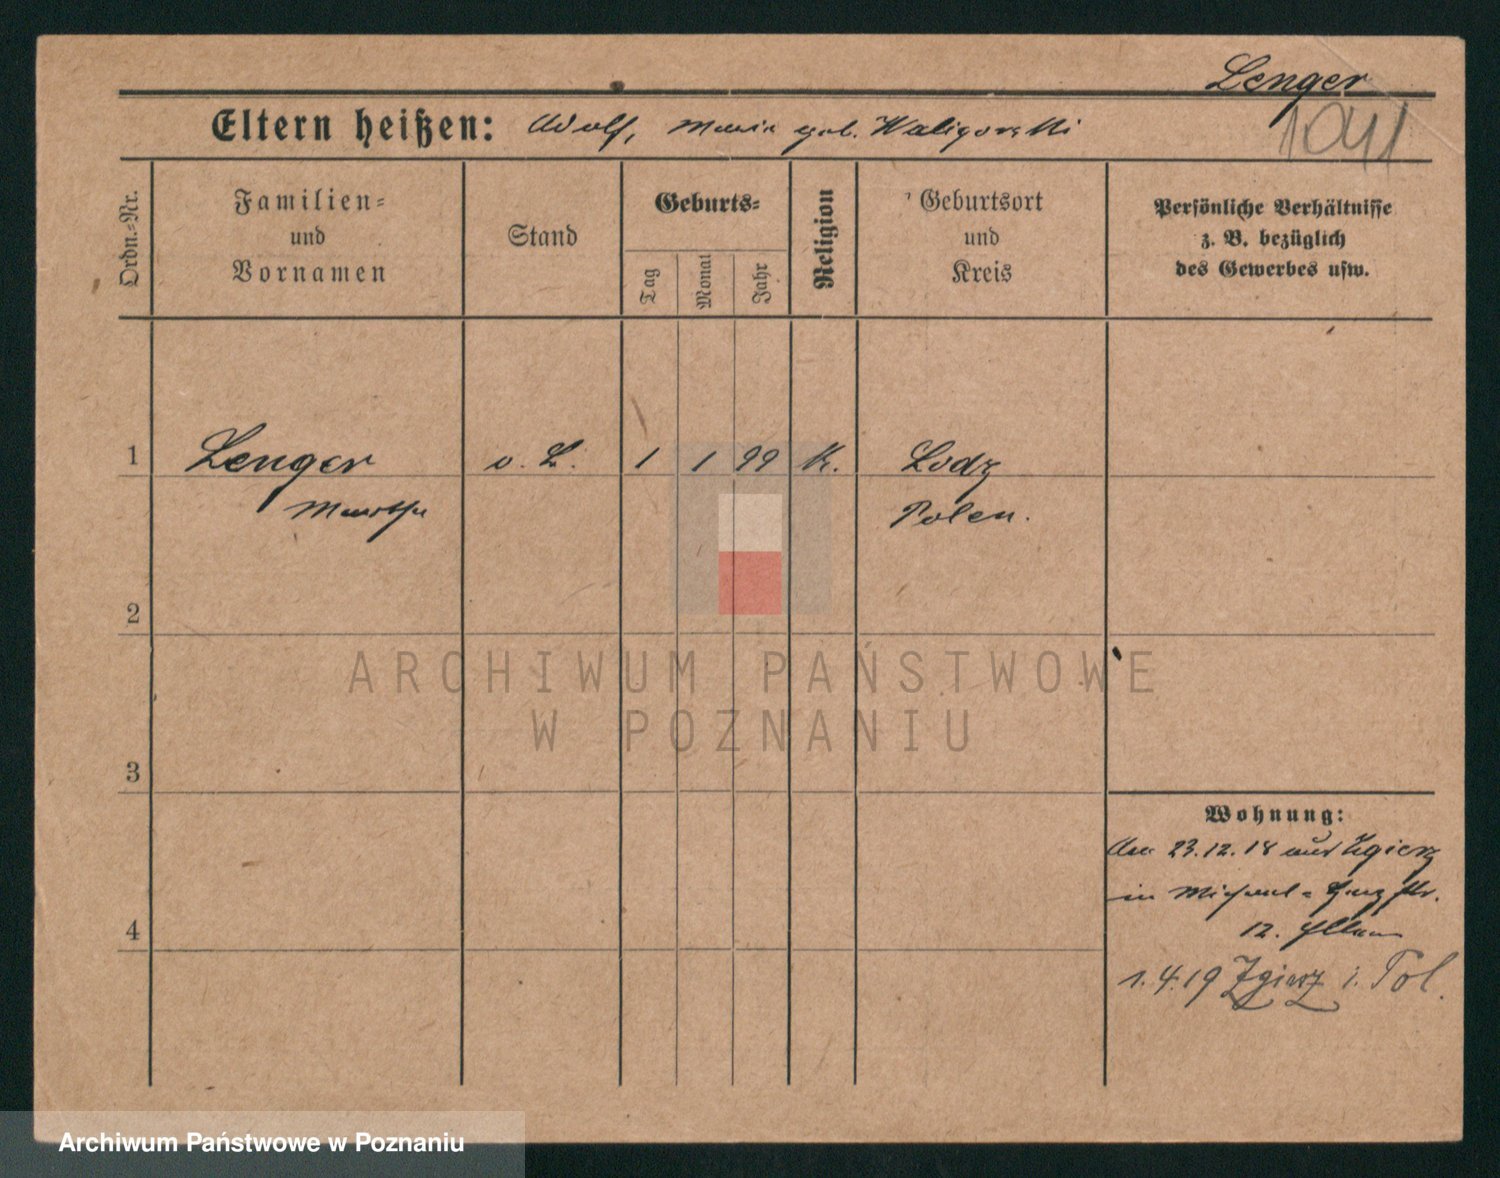 Lenger
1041
Eltern heißen: Adolf, Maria geb. Waligorski
Ordn.-Nr.
Familien-
und
Vornamen
Stand
Geburts-
Tag
Monat
Jahr
Religion
Geburtsort
und
Kreis
Persönliche Verhältnisse
z. B. bezüglich
des Gewerbes usw.
1 Lenger o. 1 1 99 K. Lodz
Martha Polen.
2
3
4
Wohnung:
Am 23.12.18 aus Zgierz
in
12.
1.4.19 Zgierz i. Pol.
ARCHIWUM PAŃSTWOWE
W POZNANIU
Archiwum Państwowe w Poznaniu